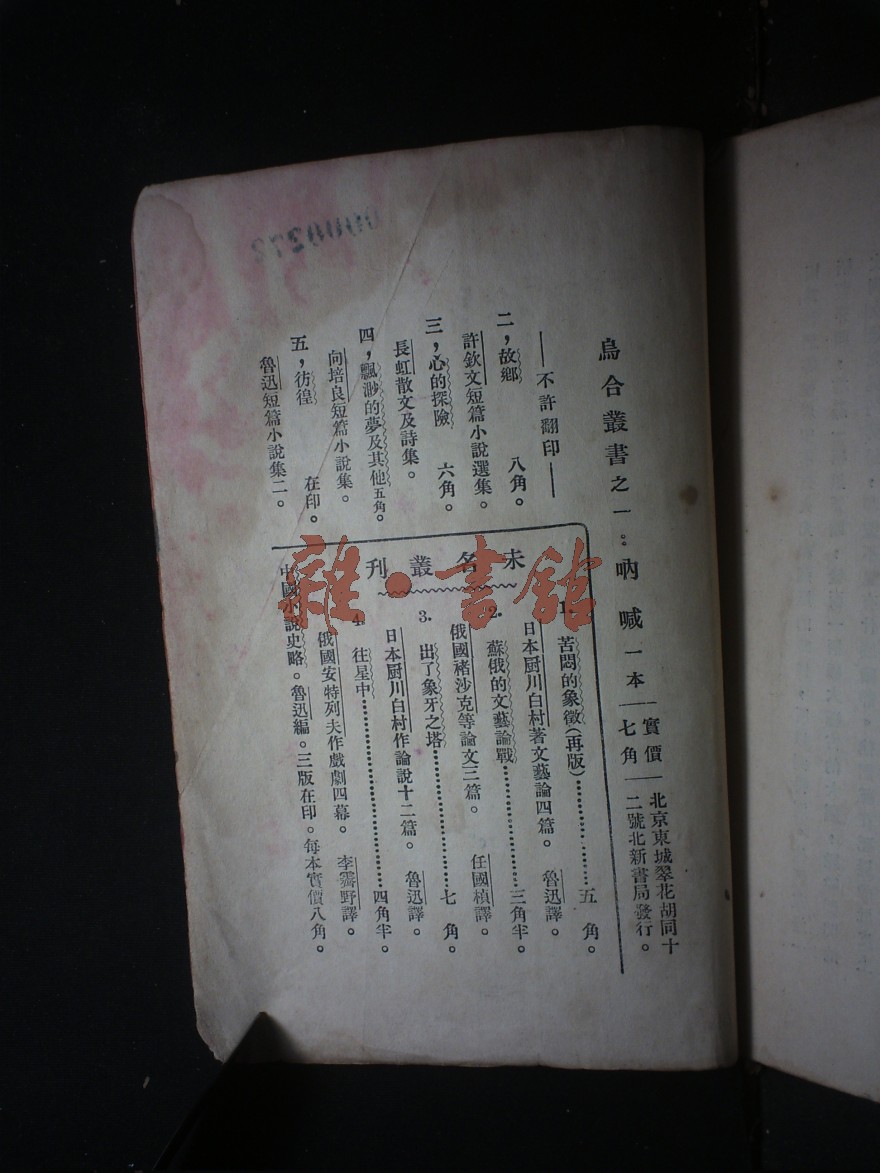 烏合叢書之一：吶喊一本
實價
七角
北京東城翠花胡同十
二號北新書局發行。
——不許翻印——
二，故鄉 八角。
許欽文短篇小說選集。
三，心的探險 六角。
長虹散文及詩集。
四，飄渺的夢及其他 五角。
向培良短篇小說集。
五，彷徨 在印。
魯迅短篇小說集二。
未名叢刊
1. 苦悶的象徵(再版)………五角。
日本厨川白村著文藝論四篇。 魯迅譯。
2. 蘇俄的文藝論戰………三角半。
俄國褚沙克等論文三篇。 任國楨譯。
3. 出了象牙之塔………七角。
日本厨川白村作論說十二篇。 魯迅譯。
4. 往星中………四角半。
俄國安特列夫作戲劇四幕。 李霽野譯。
中國小說史略。魯迅編。三版在印。每本實價八角。
0000272
雜·書館